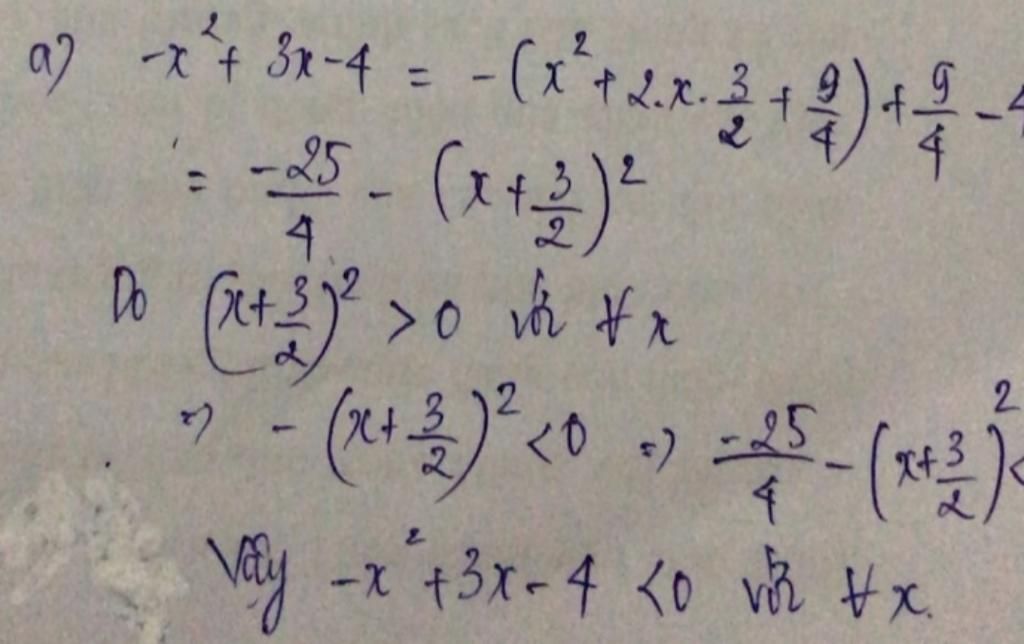 a) -x² + 3x - 4 = - (x² + 2.x. 3/2 + 9/4) + 9/4 - 4
= -25/4 - (x + 3/2)²
Do (x + 3/2)² > 0 với ∀ x
=> - (x + 3/2)² < 0 => -25/4 - (x + 3/2)² <
Vậy -x² + 3x - 4 < 0 với ∀ x.